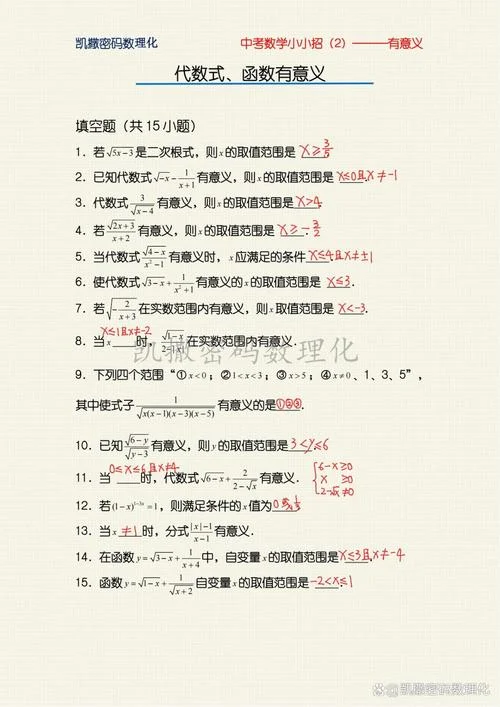 凯撒密码数理化 中考数学小小招（2）———有意义
代数式、函数有意义
填空题（共15小题）
1. 若√(5x−3)是二次根式，则x的取值范围是 x≥3/5
2. 已知代数式√(−x)−1/(x+1)有意义，则x的取值范围是 x≤0且x≠−1
3. 代数式3/√(x−4)有意义，则x的取值范围是 x>4.
4. 若√(2x+3)/(x+2)有意义，则x的取值范围是 x≥−3/2
5. 当代数式√(4−x)/(x²−1)有意义时，x应满足的条件 x≤4且x≠±1
6. 使代数式√(3−x)+1/(x²+1)有意义的x的取值范围是 x≤3.
7. 若√(−2/(x+3))在实数范围内有意义，则x取值范围是 x<−3.
x≤1且x≠−2
8. 当x____时，在实数范围内有意义.
凯撒密码数理化
9. 下列四个范围“①x<0；②1<x<3；③x>5；④x≠0、1、3、5”，
其中使式子1/√(x(x−1)(x−3)(x−5))有意义的是①②③.
10. 已知√(6−y)/√(y−3)有意义，则y的取值范围是 3<y≤6
0≤x≤6且x≠4
11. 当____时，代数式√(6−x)+2/(2−√x)有意义. {6−x≥0
x≥0
2−√x≠0
12. 若(1−x)^(1−3x)=1，则满足条件的x值为 0或1/3
13. 当x ≠1时，分式(|x|−1)/(x−1)有意义.
14. 在函数y=√(3−x)+1/(x+4)中，自变量x的取值范围是 x≤3且x≠−4
15. 函数y=√(1−x)+1/√(x+2)自变量x的取值范围是 −2<x≤1
@凯撒密码数理化